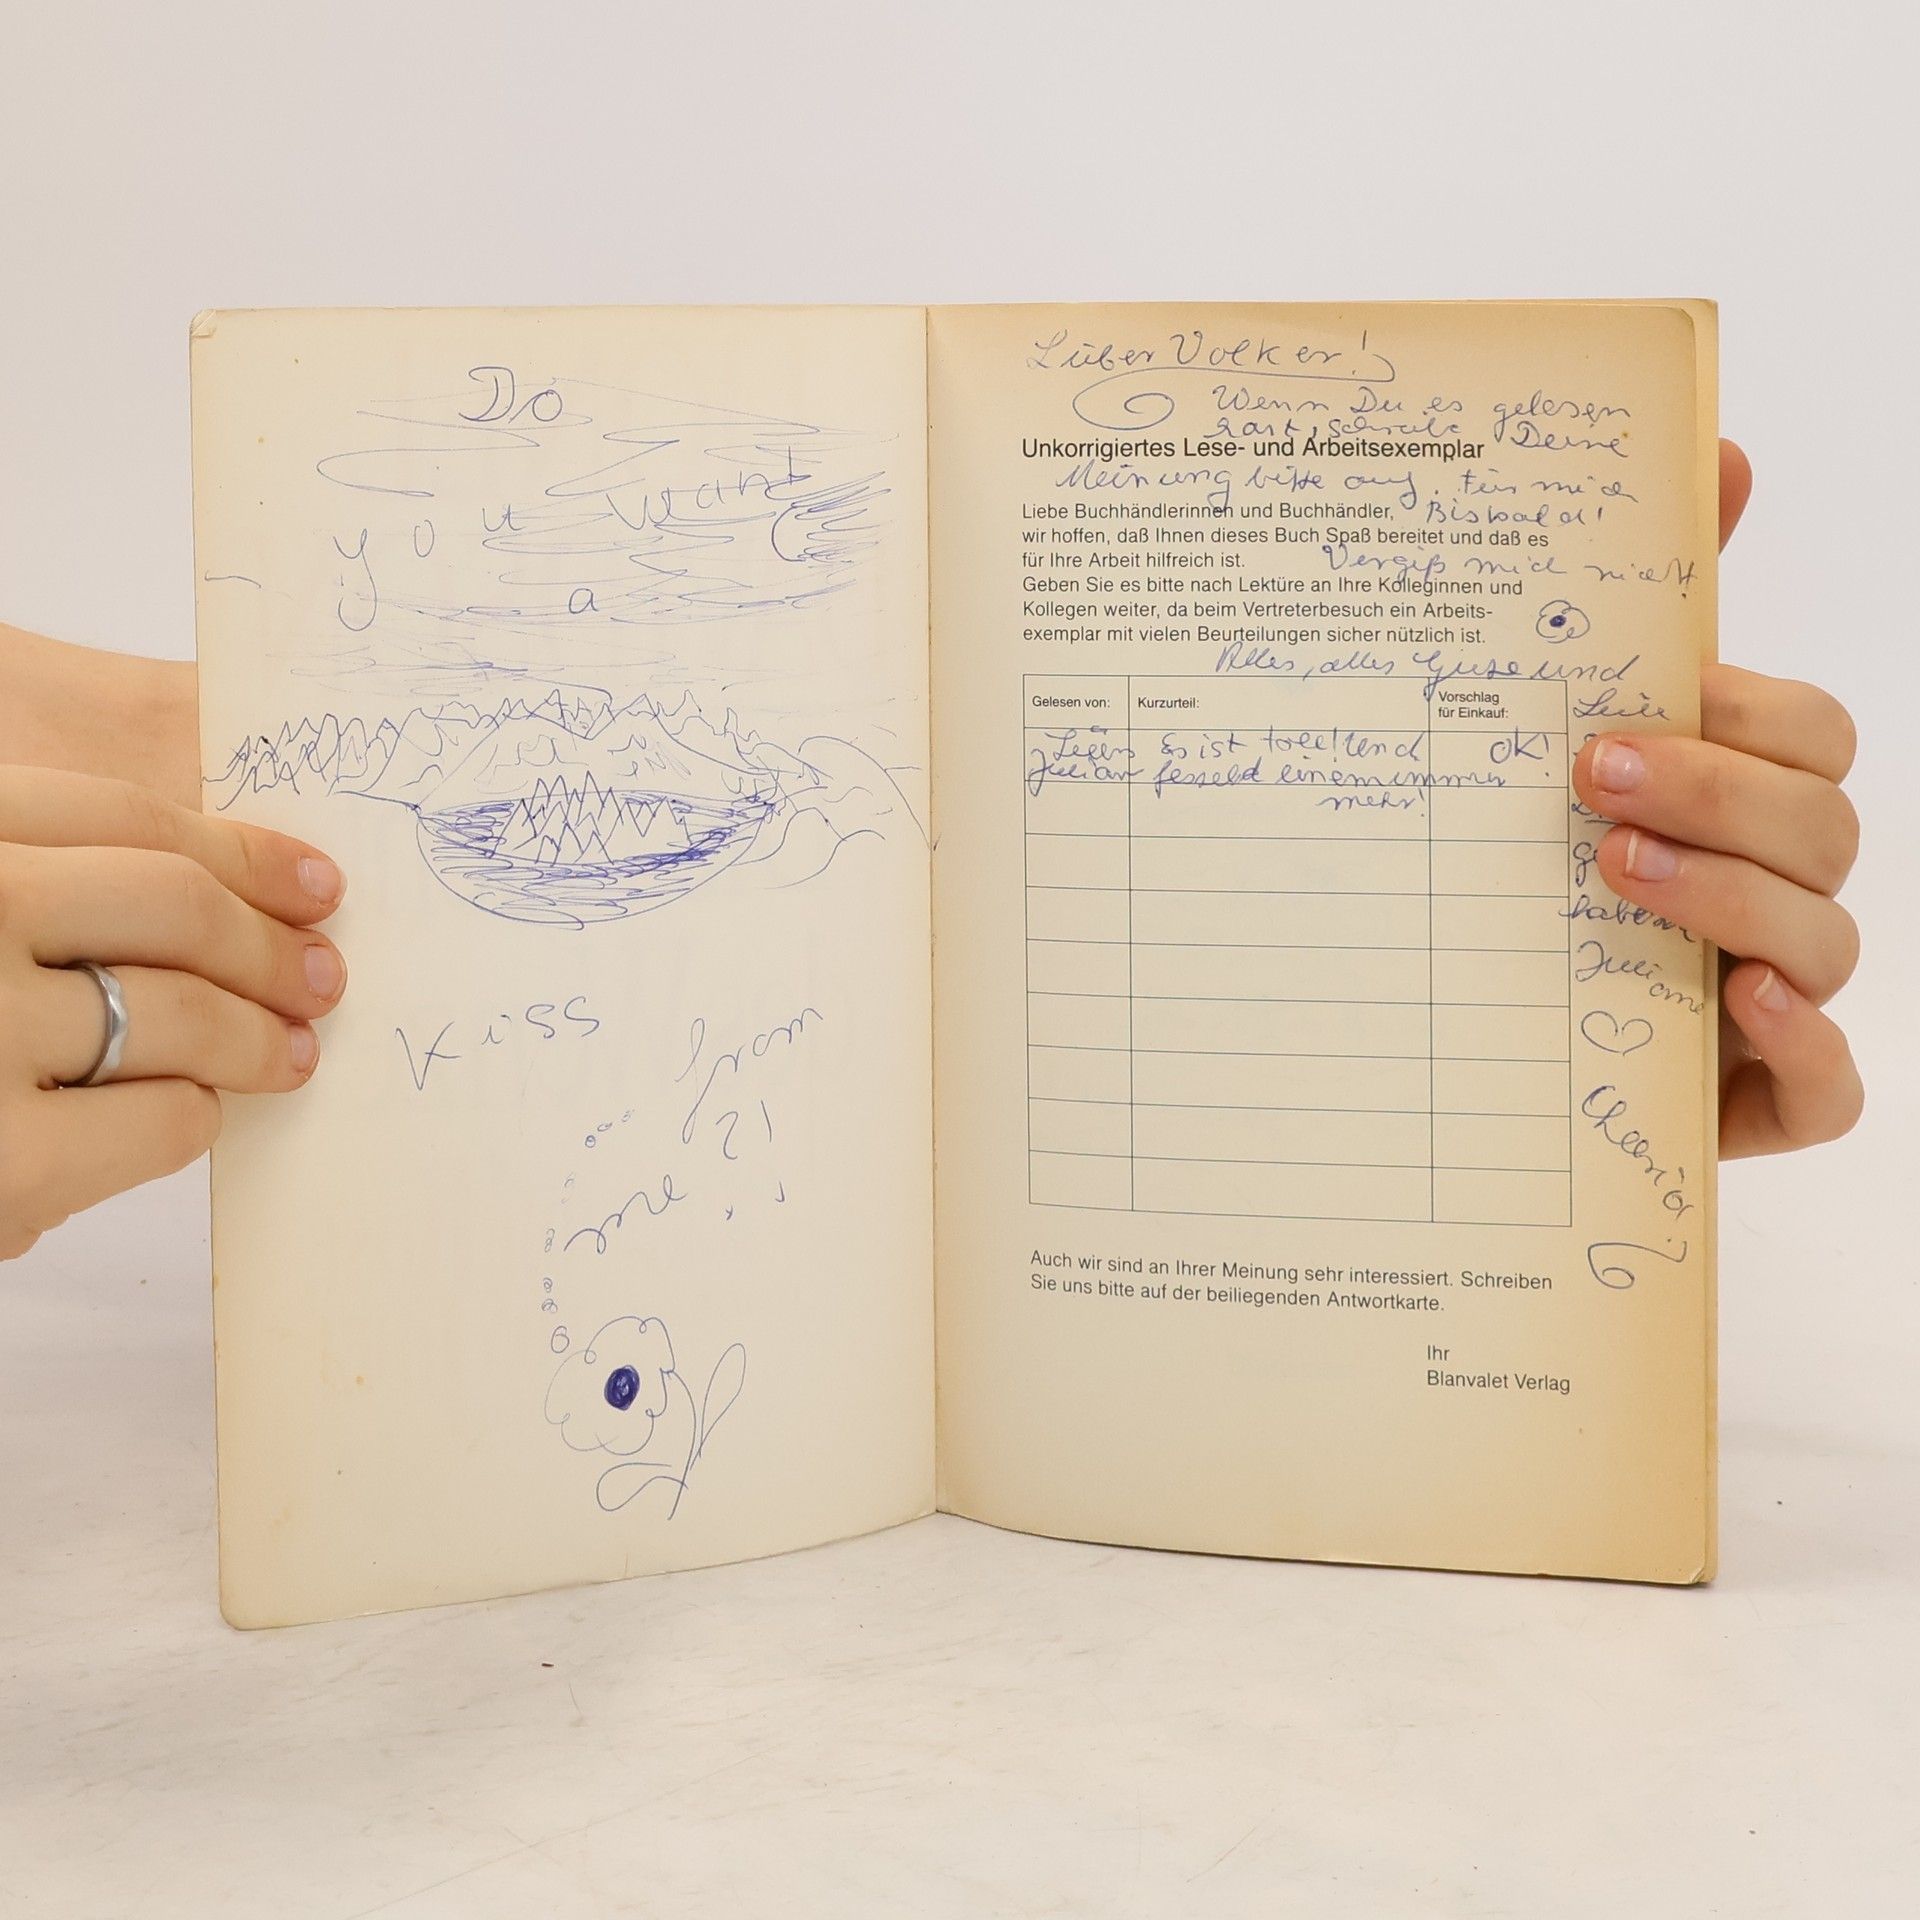 Do
you want
a
Kiss
from
me ?!
Lieber Volker!
Wenn Du es gelesen
hast, schreibe Deine
Unkorrigiertes Lese- und Arbeitsexemplar
Meinung bitte auf. Für mich
Liebe Buchhändlerinnen und Buchhändler,
Bis bald!
wir hoffen, daß Ihnen dieses Buch Spaß bereitet und daß es
für Ihre Arbeit hilfreich ist.
Vergiß mich nicht!
Geben Sie es bitte nach Lektüre an Ihre Kolleginnen und
Kollegen weiter, da beim Vertreterbesuch ein Arbeits-
exemplar mit vielen Beurteilungen sicher nützlich ist.
Alles, alles Gute und
Gelesen von:
Kurzurteil:
Vorschlag
für Einkauf:
Es ist toll! Und
OK!
einem immer
mehr!
haben
Juliane
Cheerio!
Auch wir sind an Ihrer Meinung sehr interessiert. Schreiben
Sie uns bitte auf der beiliegenden Antwortkarte.
Ihr
Blanvalet Verlag